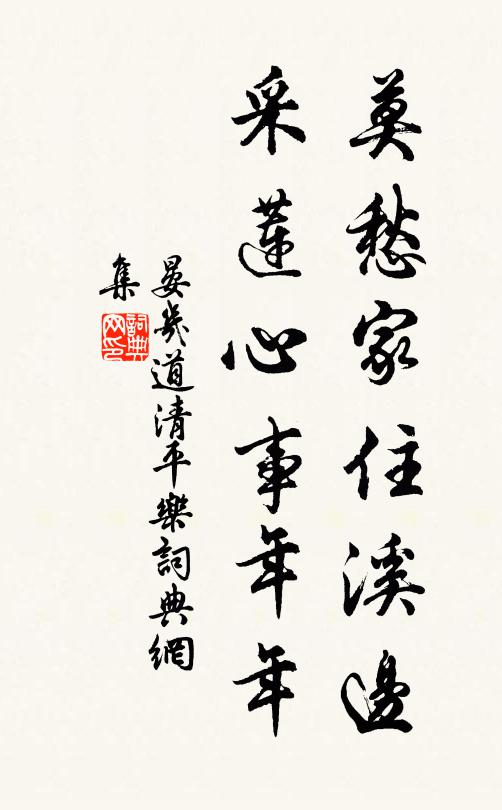 莫愁家住溪邊
采蓮心事年年
晏幾道清平樂詞典網
集
詞典网印